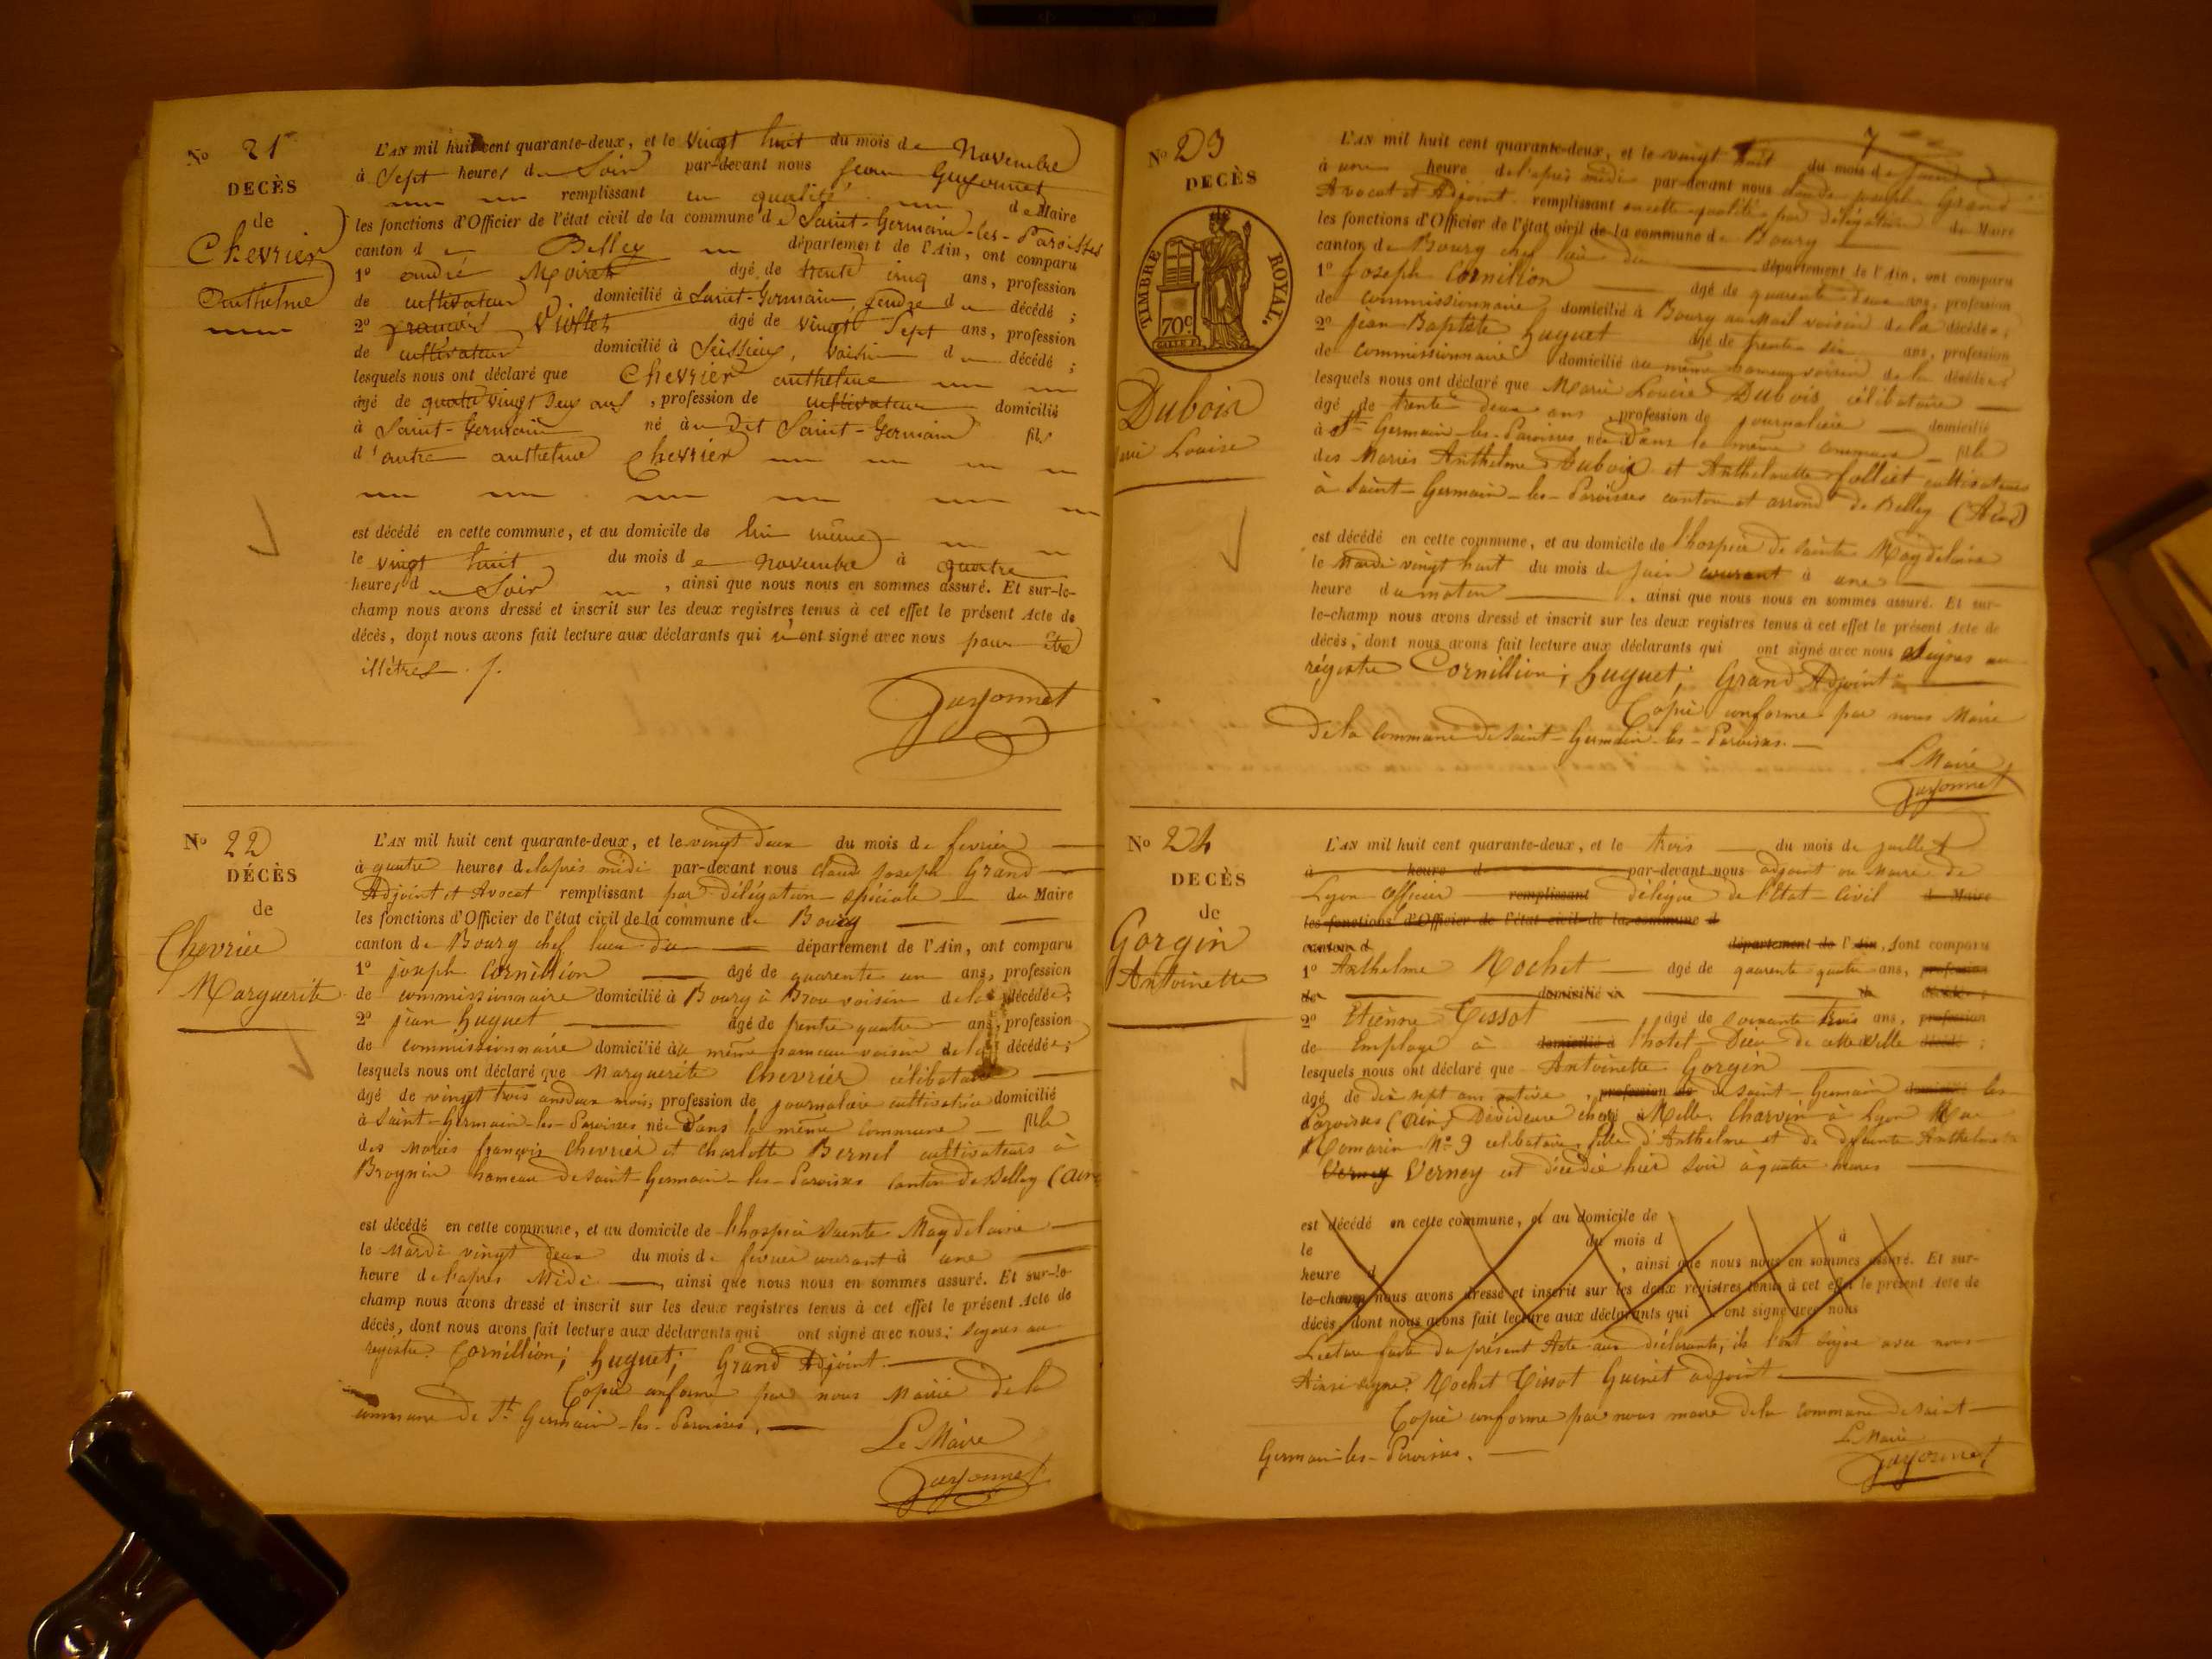 No 21
DECÈS
de
Chevrier
Anthelme
L'AN mil huit cent quarante-deux, et le vingt huit du mois de Novembre
à Sept heures du Soir par-devant nous Jean Guyonnet
remplissant en qualité de Maire
les fonctions d'Officier de l'état civil de la commune de Saint-Germain-les-Paroisses
canton de Belley département de l'Ain, ont comparu
1o andré Moiret âgé de trente cinq ans, profession
de cultivateur domicilié à Saint-Germain, gendre du décédé ;
2o françois Viollet âgé de vingt Sept ans, profession
de cultivateur domicilié à Seissieu, voisin du décédé ;
lesquels nous ont déclaré que Chevrier anthelme
âgé de quatre vingt deux ans, profession de cultivateur domicilié
à Saint-Germain né au dit Saint-Germain fils
d'autre anthelme Chevrier
est décédé en cette commune, et au domicile de lui même
le vingt huit du mois de novembre à quatre
heures du Soir, ainsi que nous nous en sommes assuré. Et sur-le-
champ nous avons dressé et inscrit sur les deux registres tenus à cet effet le présent Acte de
décès, dont nous avons fait lecture aux déclarants qui n'ont signé avec nous pour être
illétres
Guyonnet
No 22
DÉCÈS
de
Chevrier
Marguerite
L'AN mil huit cent quarante-deux, et le vingt deux du mois de fevrier
à quatre heures de l'après midi par-devant nous Claude Joseph Grand
Adjoint et Avocat remplissant par délégation spéciale du Maire
les fonctions d'Officier de l'état civil de la commune de Bourg
canton de Bourg chef lieu du département de l'Ain, ont comparu
1o joseph Cornillion âgé de quarente un ans, profession
de commissionnaire domicilié à Bourg à Brou voisin de la décédée;
2o jean huguet âgé de trente quatre ans, profession
de commissionnaire domicilié au même hameau voisin de la décédée;
lesquels nous ont déclaré que Marguerite Chevrier célibataire
âgé de vingt trois ans deux mois, profession de journalière cultivatrice domicilié
à Saint-Germain-les-Paroisses née dans la même commune fille
des Mariés françois Chevrier et Charlotte Bernel cultivateurs à
Brognin hameau de Saint-Germain-les-Paroisses Canton de Belley (Ain
est décédé en cette commune, et au domicile de l'hospice Sainte Magdelaine
le Mardi vingt deux du mois de fevrier courant à une
heure de l'après Midi, ainsi que nous nous en sommes assuré. Et sur-le-
champ nous avons dressé et inscrit sur les deux registres tenus à cet effet le présent Acte de
décès, dont nous avons fait lecture aux déclarants qui ont signé avec nous; Signés au
registre: Cornillion; huguet; Grand Adjoint.
Copie conforme par nous Maire de la
commune de St Germain-les-Paroisses.
Le Maire
Guyonnet
7
No 23
DECÈS
TIMBRE ROYAL.
70c
Dubois
Louise
L'AN mil huit cent quarante-deux, et le vingt huit du mois de juin
à une heure de l'après midi par-devant nous Claude joseph Grand
Avocat et Adjoint remplissant en cette qualité par délégation du Maire
les fonctions d'Officier de l'état civil de la commune de Bourg
canton de Bourg chef lieu du département de l'Ain, ont comparu
1o Joseph Cornillion âgé de quarente deux ans, profession
de commissionnaire domicilié à Bourg au Mail voisin de la décédée;
2o jean Baptiste huguet âgé de trente six ans, profession
de commissionnaire domicilié au même hameau voisin de la décédée
lesquels nous ont déclaré que Marie Louise Dubois célibataire
âgé de trente deux ans, profession de journalière domicilié
à St Germain-les-Paroisses née dans la même commune fille
des Mariés Anthelme Dubois et Anthelmette folliet cultivateurs
à Saint-Germain-les-Paroisses canton et arrond. de Belley (Ain)
est décédé en cette commune, et au domicile de l'hospice de Sainte Magdelaine
le Mardi vingt huit du mois de juin courant à une
heure du matin, ainsi que nous nous en sommes assuré. Et sur-
le-champ nous avons dressé et inscrit sur les deux registres tenus à cet effet le présent Acte de
décès, dont nous avons fait lecture aux déclarants qui ont signé avec nous Signés au
régistre Cornillion; huguet; Grand Adjoint
Copie conforme par nous Maire
de la Commune de Saint-Germain-les-Paroisses.
Le Maire
Guyonnet
No 24
DECÈS
de
Gorgin
Antoinette
L'AN mil huit cent quarante-deux, et le trois du mois de juillet
à heure d par-devant nous adjoint au Maire de
Lyon Officier remplissant délégué de l'Etat-Civil d Maire
les fonctions d'Officier de l'état civil de la commune d
canton d département de l'Ain, sont comparu
1o Anthelme Rochet âgé de quarente quatre ans, profession
de domicilié à d décédé ;
2o Etienne Tissot âgé de soixante trois ans, profession
de Employé à domicilié à l'hotel-Dieu de cette Ville décédé ;
lesquels nous ont déclaré que Antoinette Gorgin
âgé de dix sept ans native, profession de de Saint-Germain domicilié les
Paroisses (Ain) Dévideuse chez Melle Charvin à Lyon Rue
Romarin No 9 célibataire, fille d'Anthelme et de défunte Anthelmette
Verney Verney est décédée hier soir à quatre heures
est décédé en cette commune, et au domicile de
le du mois d à
heure d, ainsi que nous nous en sommes assuré. Et sur-
le-champ nous avons dressé et inscrit sur les deux registres tenus à cet effet le présent Acte de
décès, dont nous avons fait lecture aux déclarants qui ont signé avec nous
Lecture faite du présent Acte aux déclarants, ils l'ont signé avec nous
Ainsi signé: Rochet Tissot Guinet adjoint.
Copie conforme par nous maire de la commune de Saint-
Germain-les-Paroisses.
Le Maire
Guyonnet